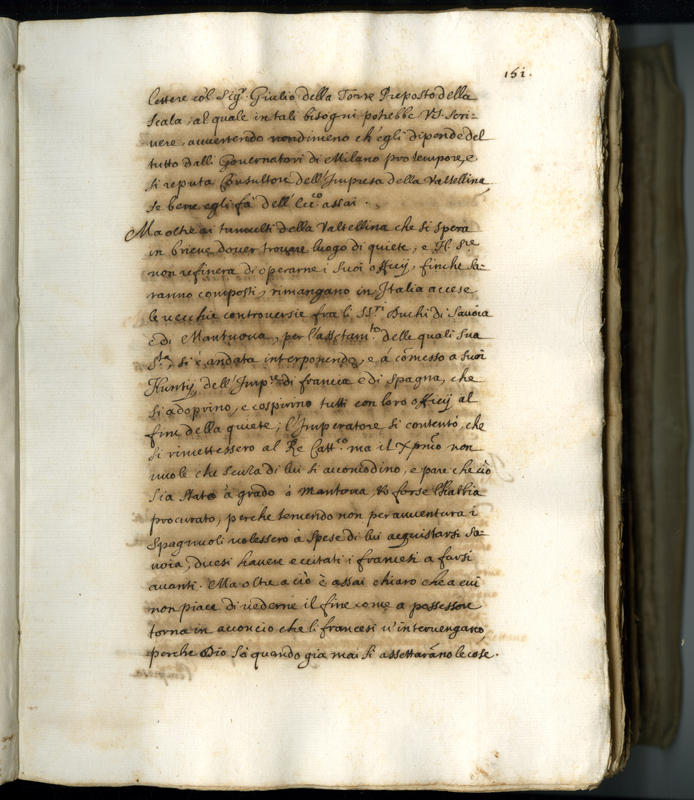 151.
lettere col Sigr. Giulio della Torre Preposto della
Scala, al quale in tali bisogni potrebbe V.S. scri-
vere, avvertendo nondimeno ch'egli dipende del
tutto dalli Governatori di Milano pro tempore, e
si reputa Consultore dell'Impresa della Valtellina,
se bene egli fà dell'Ecc.co assai.
Ma oltre ai tumulti della Valtellina che si spera
in brieve dover trovare luogo di quiete, e N. Sre
non refinerà di operarne i suoi officij, finche sa-
ranno composti, rimangano in Italia accese
le vecchie controversie fra li SS.ri Duchi di Savoia
e di Mantuova, per l'assetam.to delle quali sua
S.tà, si è andata interponendo, e à comesso a suoi
Nuntij, dell'Imp.re di francia e di Spagna, che
si adoprino, e cospirino tutti con loro officij al
fine della quiete; l'Imperatore si contentò, che
si rimettessero al Re Catt.co ma il Xpmo non
vuole che senza di lui si accomodino, e pare che ciò
sia stato à grado à Mantova, ò forse l'habbia
procurato, perche temendo non per avventura i
Spagnuoli volessero à spese di lui acquistarsi Sa-
voia, dicesi haver eccitati i francesi a farsi
avanti. Ma oltre a ciò è assai chiaro che a cui
non piace di vederne il fine come a possessore
torna in acconcio che li francesi v'intervengano,
perche Dio sà quando già mai si assettaranno le cose.